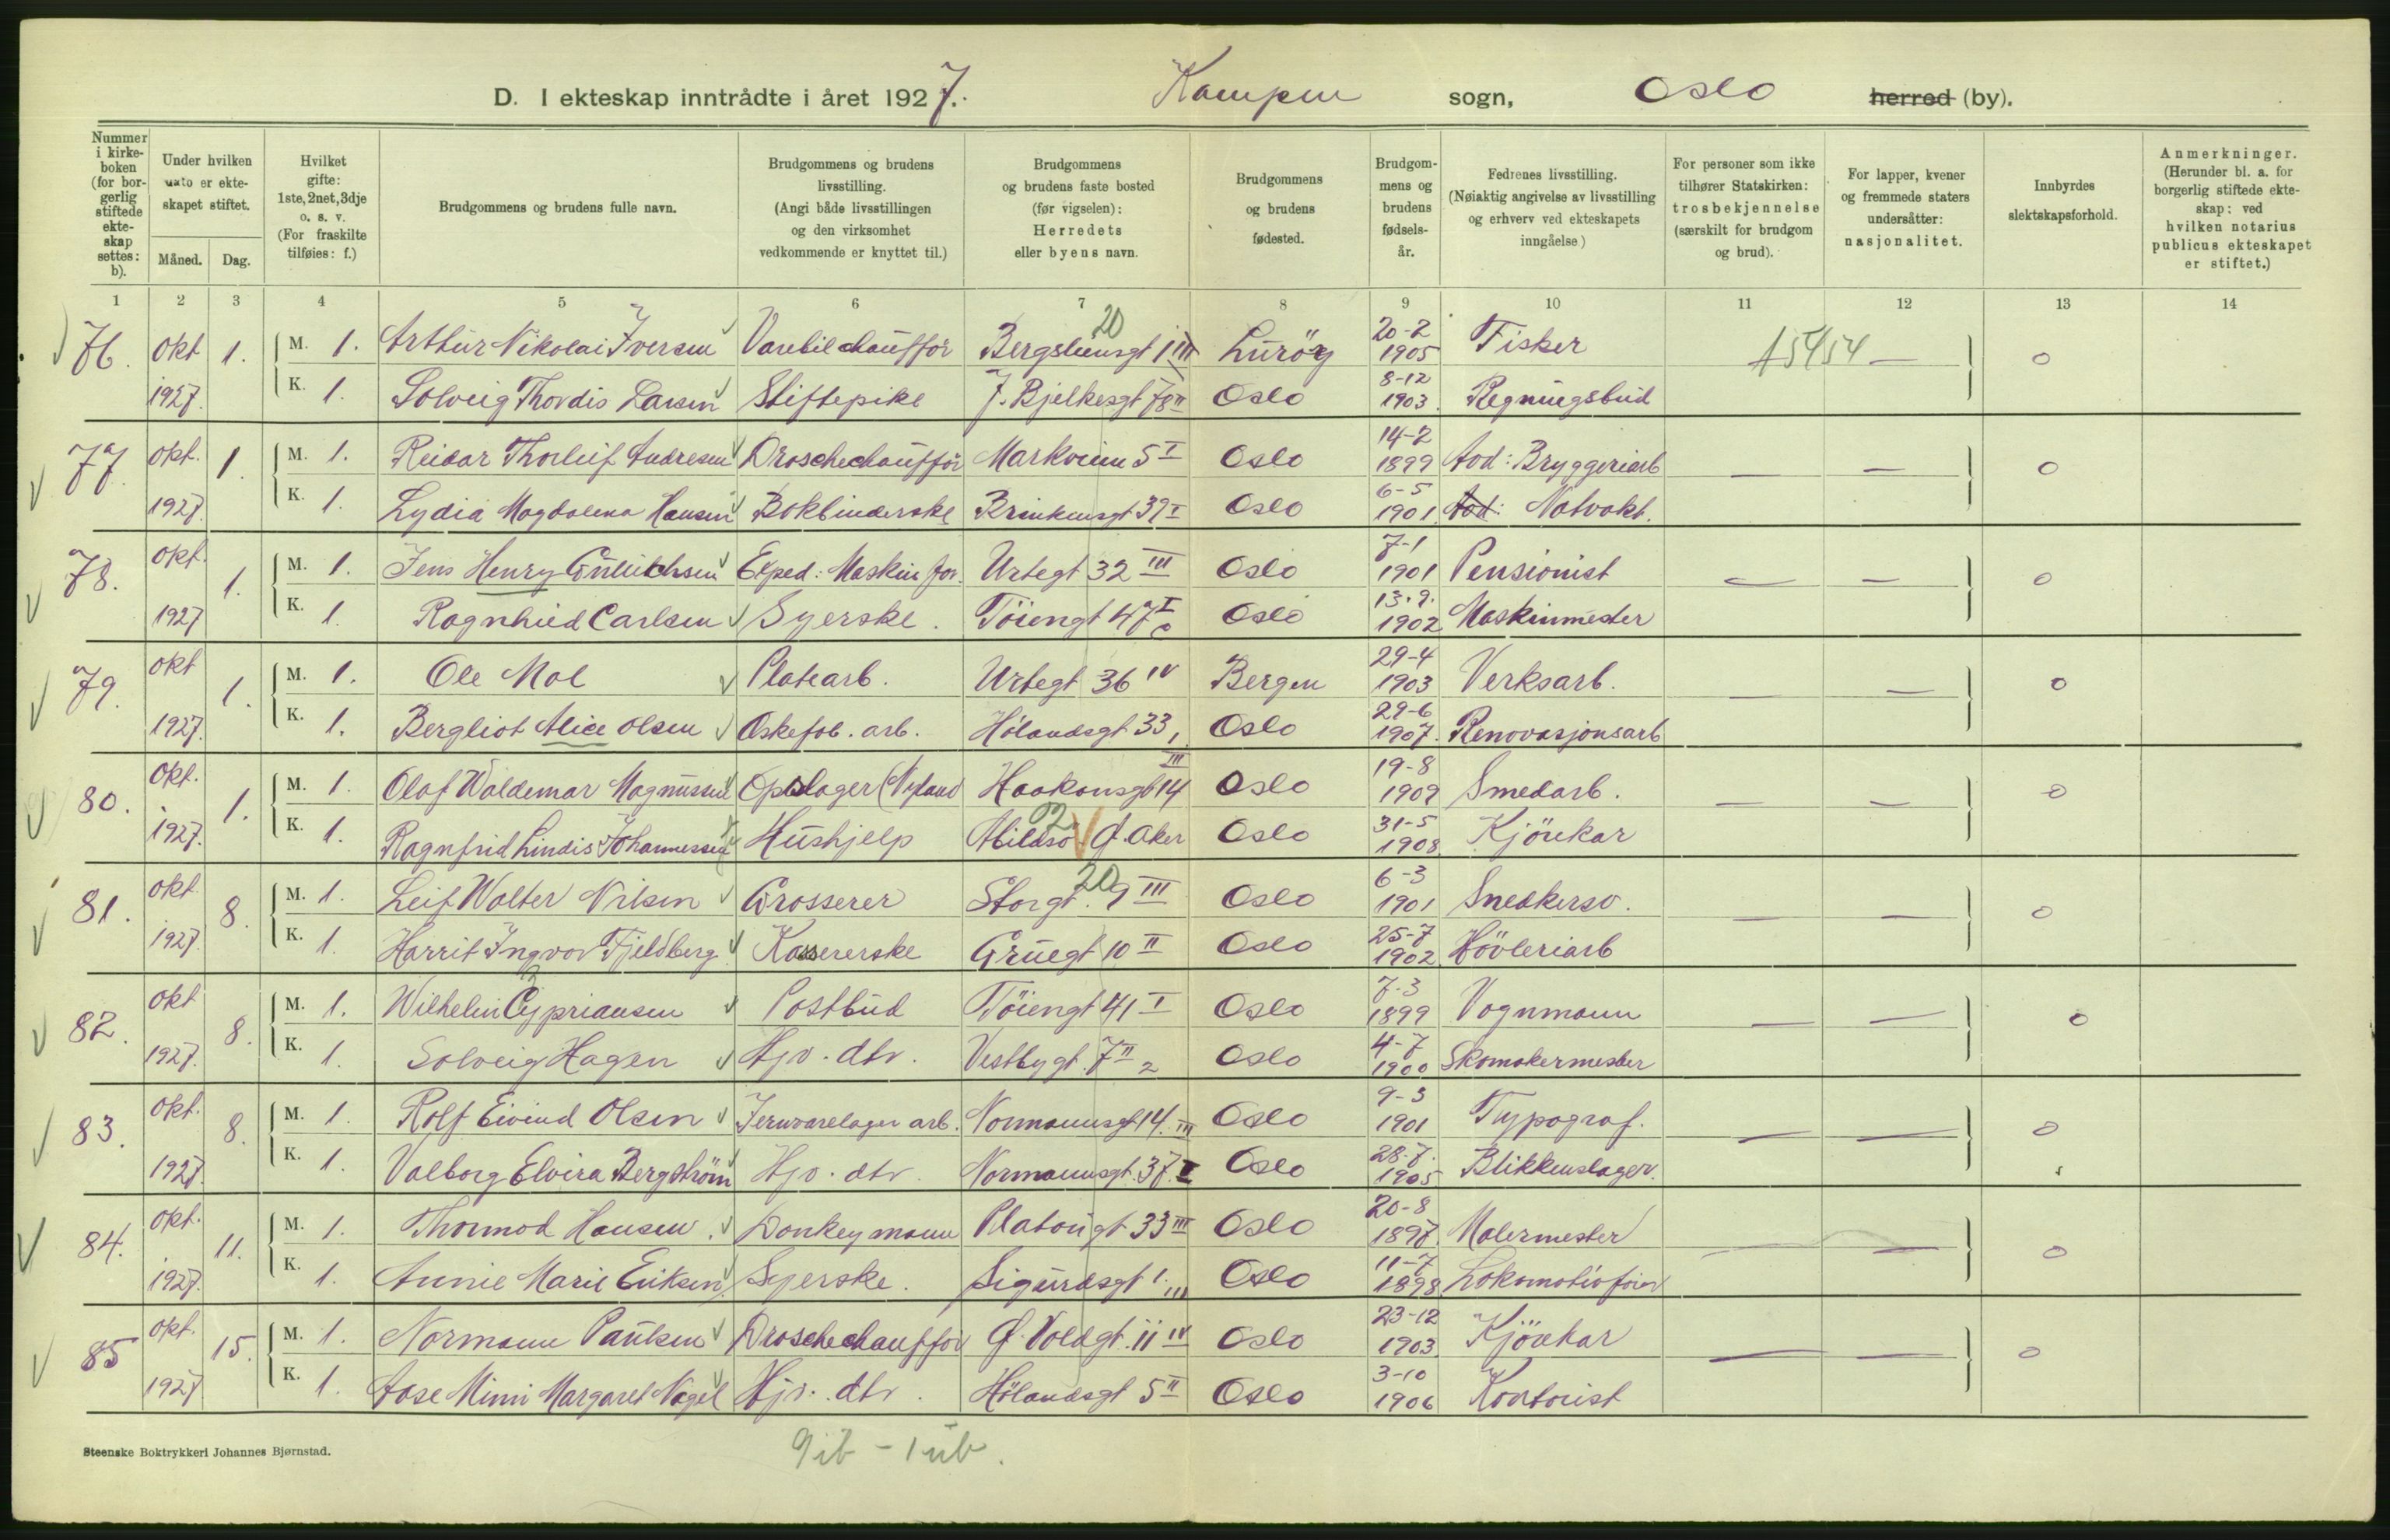 D. I ekteskap inntrådte i året 1927. Kampen sogn, Oslo herred (by).
Nummer i kirke- boken (for bor- gerlig stiftede ekte- skap settes: b).
Under hvilken dato er ekte- skapet stiftet.
Måned. Dag.
Hvilket gifte: 1ste, 2net, 3dje o. s. v. (For fraskilte tilføies: f.)
Brudgommens og brudens fulle navn.
Brudgommens og brudens livsstilling. (Angi både livsstillingen og den virksomhet vedkommende er knyttet til.)
Brudgommens og brudens faste bosted (før vigselen): Herredets eller byens navn.
Brudgommens og brudens fødested.
Brudgom- mens og brudens fødsels- år.
Fedrenes livsstilling. (Nøiaktig angivelse av livsstilling og erhverv ved ekteskapets inngåelse)
For personer som ikke tilhører Statskirken: trosbekjennelse (særskilt for brudgom og brud).
For lapper, kvener og fremmede staters undersåtter: nasjonalitet.
Innbyrdes slektskapsforhold.
Anmerkninger. (Herunder bl. a. for borgerlig stiftede ekte- skap: ved hvilken notarius publicus ekteskapet er stiftet.)
1 2 3 4 5 6 7 8 9 10 11 12 13 14
20
76. Okt 1. M. 1. Arthur Nikolai Iversen Varebilchaufför Bergsliensgt 1 III Luröy 20-2 1905 Fisker 15454 — 0
1927. K. 1. Solveig Thordis Larsen Stiftepike J. Bjelkesgt 78 II Oslo 8-12 1903 Regningsbud
77. Okt. 1. M. 1. Reidar Thorleif Andresen Droschechaufför Markveien 5 I Oslo 14-2 1899 Aod: Bryggeriarb — — 0
1927. K. 1. Lydia Magdalena Hansen Bokbinderske Brinkensgt 39 I Oslo 6-5 1901 Aod: Natvakt.
78. Okt. 1. M. 1. Jens Henry Exped: Maskin for. Urtegt 32 III Oslo 7-1 1901 Pensionist — — 0
1927 K. 1. Ragnhild Carlsen Syerske. Töiengt 47 I Oslo 13.9. 1902 Maskinmester
79. Okt 1. M. 1. Ole Mol Platearb. Urtegt 36 IV Bergen 29-4 1903 Verksarb. — — 0
1927. K. 1. Bergliot Alice Olsen Eskefab. arb. Hölandsgt 33, Oslo 29-6 1907. Renovasjonsarb
80. Okt. 1. M. 1. Olaf Waldemar Magnussen Opslager (Nyland Haakonsgt 14 III Oslo 19-8 1909 Smedarb. — — 0
1927. K. 1. Ragnfrid Lindis Johannessen Hushjelp Abildsö Ø. Aker Oslo 31-5 1908 Kjörekar
81. Okt 8. M. 1. Leif Walter Nilsen Grosserer Storgt. 9 III 20 Oslo 6-3 1901 Snedkersv. — — 0
1927. K. 1. Harrit Ingvor Fjeldberg Kassererske Grüegt 10 II Oslo 25-7 1902 Hövleriarb
82. Okt 8. M. 1. Wilhelm Cypriansen Postbud Töiengt 41 I Oslo 7-3 1899 Vognmann — — 0
1927. K. 1. Solveig Hagen Hjv. dtr. Vestbygt. 7 II 2 Oslo 4-7 1900 Skomakermester
83. Okt. 8. M. 1. Rolf Eivind Olsen Jernvarelager arb. Normannsgt 14. III Oslo 9-3 1901 Typograf. — — 0
1927. K. 1. Valborg Elvira Bergström Hjv. dtr. Normannsgt. 37. I Oslo 28-7. 1905 Blikkenslager.
84. Okt. 11. M. 1. Thormod Hansen. Donkeymann Platougt 33 III Oslo 20-8 1897. Malermester — — 0
1927. K. 1. Annie Marie Eriksen Syerske. Sigurdsgt 1. III Oslo 11-7 1898 Lokomotivförer
85 Okt. 15. M. 1. Normann Paulsen Droschechaufför Ø. Voldgt. 11 IV Oslo 23-12 1903 Kjörekar — — 0
1927 K. 1. Aase Mimi Margaret Nagel Hjv. dtr. Hölandsgt 5 II Oslo 3-10 1906 Kontorist
Steenske Boktrykkeri Johannes Bjørnstad.
9 ib – 1 ub.